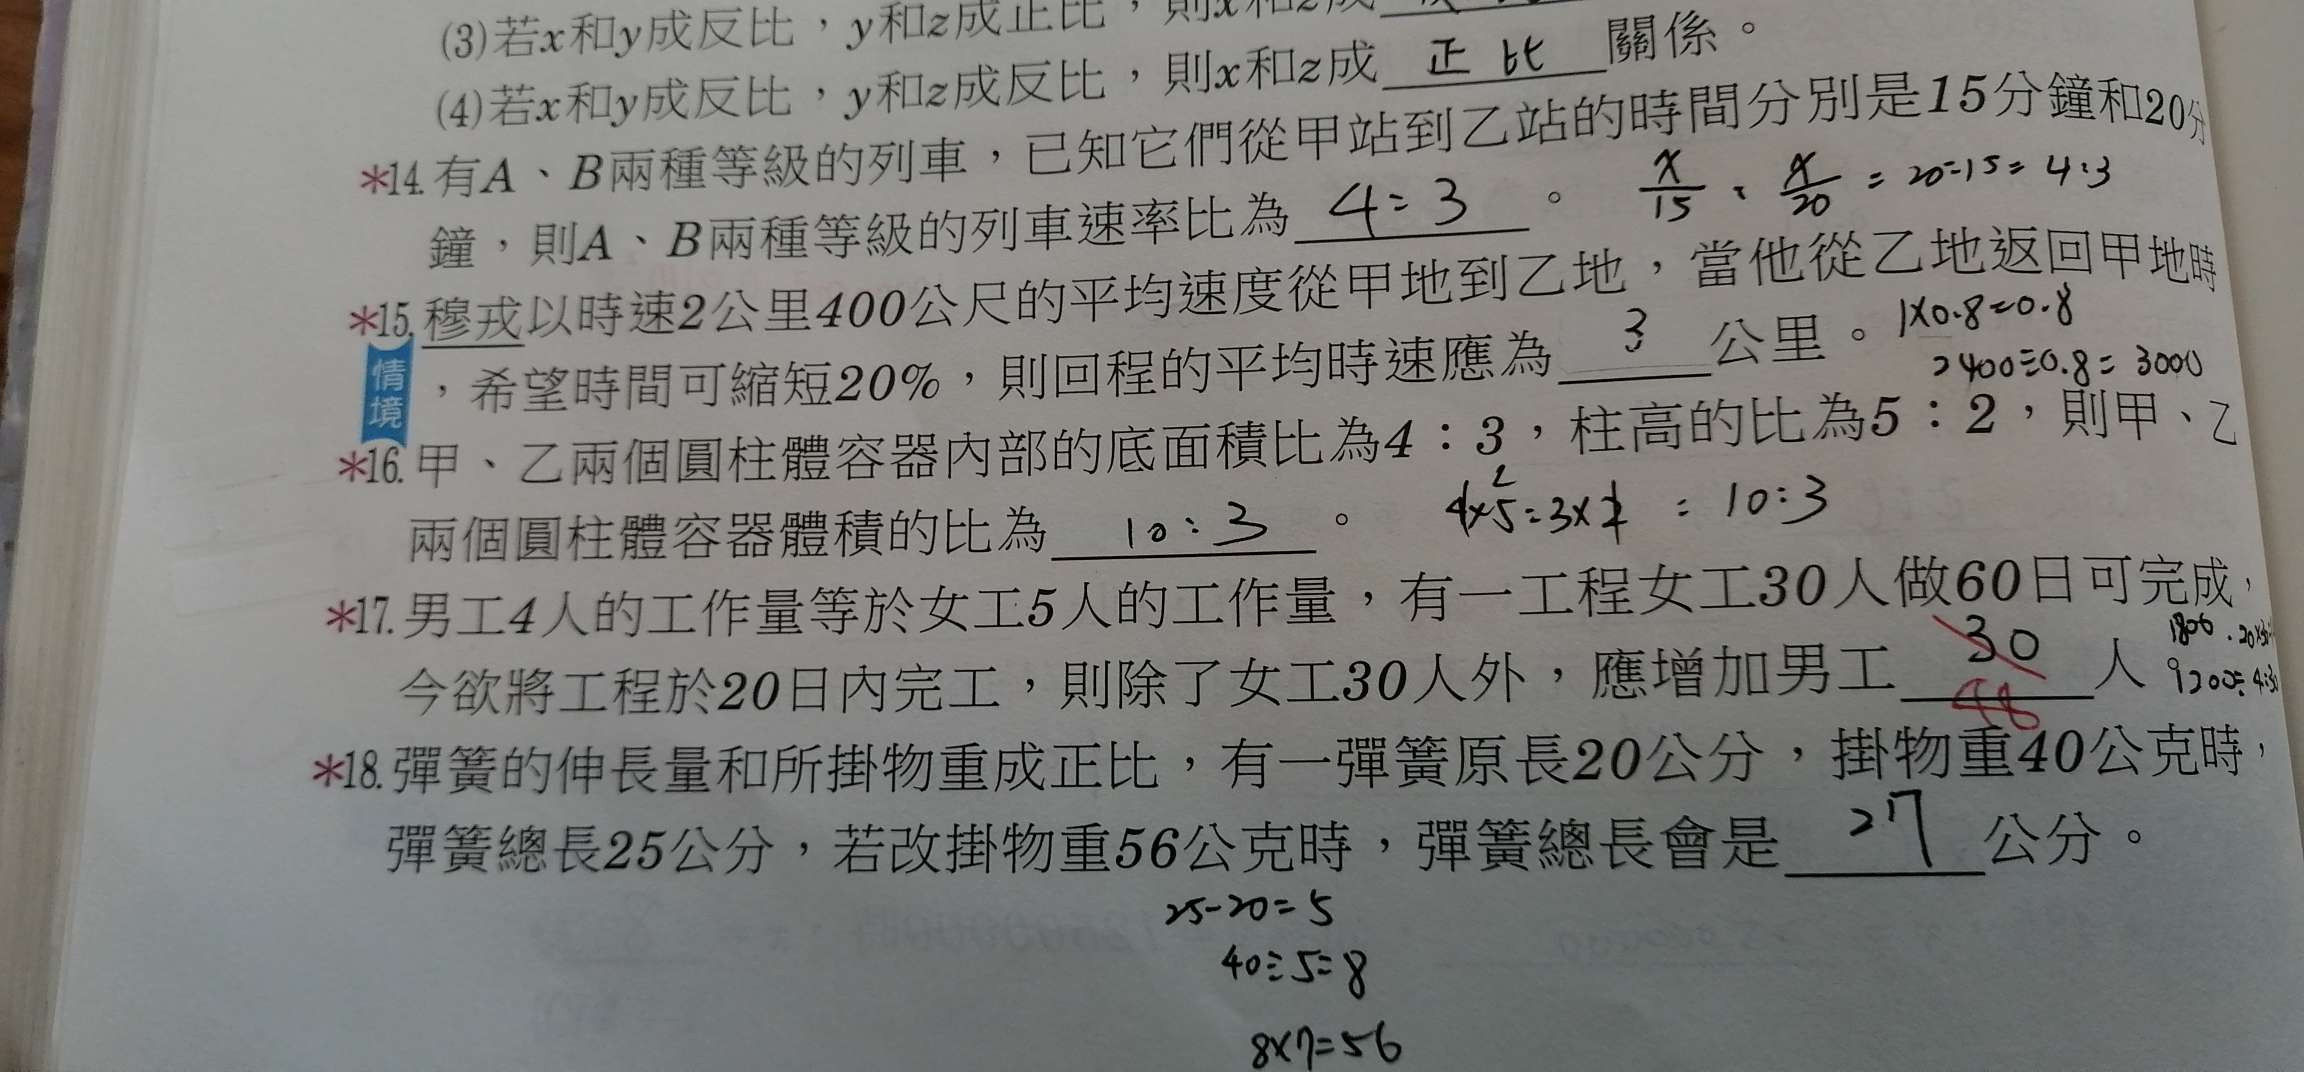 (3)若x和y成反比，y和z成正比，則x和z成
(4)若x和y成反比，y和z成反比，則x和z成 正比 關係。
*14.有A、B兩種等級的列車，已知它們從甲站到乙站的時間分別是15分鐘和20分
鐘，則A、B兩種等級的列車速率比為 4:3 。 x/15 : x/20 = 20:15 = 4:3
*15.穆戎以時速2公里400公尺的平均速度從甲地到乙地，當他從乙地返回甲地時
情境 ，希望時間可縮短20%，則回程的平均時速應為 3 公里。 1×0.8=0.8
2400÷0.8=3000
*16.甲、乙兩個圓柱體容器內部的底面積比為4：3，柱高的比為5：2，則甲、乙
兩個圓柱體容器體積的比為 10:3 。 4×5:3×2 = 10:3
*17.男工4人的工作量等於女工5人的工作量，有一工程女工30人做60日可完成，
今欲將工程於20日內完工，則除了女工30人外，應增加男工 30 48 人
*18.彈簧的伸長量和所掛物重成正比，有一彈簧原長20公分，掛物重40公克時，
彈簧總長25公分，若改掛物重56公克時，彈簧總長會是 27 公分。
25-20=5
40÷5=8
8×7=56